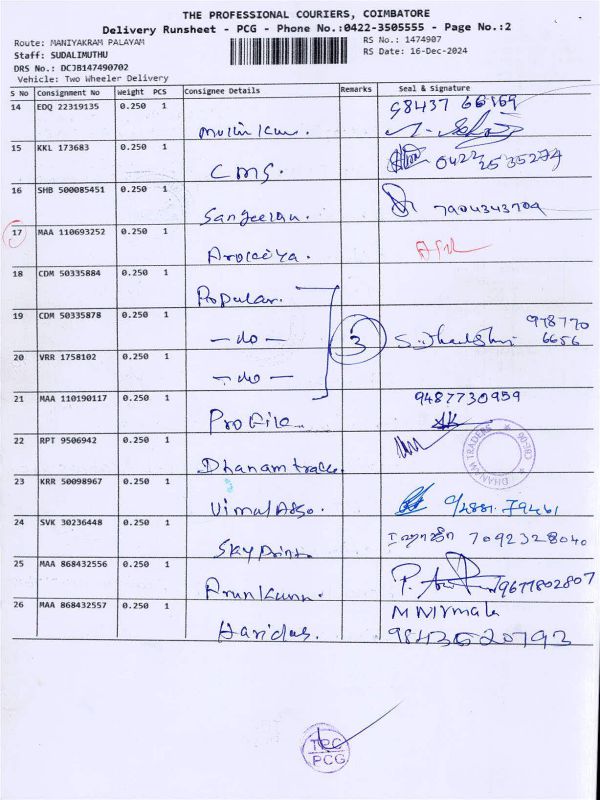 THE PROFESSIONAL COURIERS, COIMBATORE
Delivery Runsheet - PCG - Phone No.:0422-3505555 - Page No.:2
Route: MANIYAKRAM PALAYAM
RS No.: 1474907
Staff: SUDALIMUTHU
RS Date: 16-Dec-2024
DRS No.: DCJB147490702
Vehicle: Two Wheeler Delivery
S No Consignment No Weight PCS Consignee Details Remarks Seal & Signature
14 EDQ 22319135 0.250 1 98437 66169
15 KKL 173683 0.250 1 CMS. 0422 2535274
16 SHB 500085451 0.250 1 7904343704
17 MAA 110693252 0.250 1
18 CDM 50335884 0.250 1 Popular.
19 CDM 50335878 0.250 1 — do — 3 978770 6656
20 VRR 1758102 0.250 1 — do —
21 MAA 110190117 0.250 1 Profile 9487730959
22 RPT 9506942 0.250 1 Dhanam trade. DHANAM TRADERS
23 KRR 50098967 0.250 1 Vimal Asso. 94881 79461
24 SVK 30236448 0.250 1 Sky print 7092328040
25 MAA 868432556 0.250 1 Arun Kumr. 9677802807
26 MAA 868432557 0.250 1 Haridas. M Nirmala 9843520793
TPC
PCG